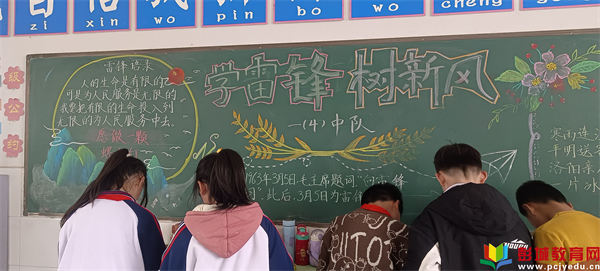 自信 我 拼 搏 我 成 功
zi xin wo pin bo wo cheng gong
級
公
约
雷锋语录
人的生命是有限的
可是为人民服务是无限的
我要把有限的生命投入到
无限的为人民服务中去。
愿做一颗
学雷锋 树新风
一(4)中队
1963年3月5日,毛主席题词"向雷锋
此后,3月5日为雷锋
寒雨连江
平明送客
洛阳亲
一片冰
彭城教育网
www.pcjyedu.cn